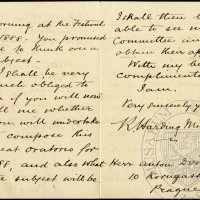 orning at the Festival
1888. You promised
e to think over a
ubject –
I shall be very
uch obliged to
if you will now
ll me whether
you will undertake
compose this
eat oratorio for
88, and also what
e subject will be
I shall then b
able to see m
Committee an
obtain their ap
With my be
compliment
I am.
Very sincerely y
R Harding Mi
Herr Anton Dvo
10 Korngass
Prague